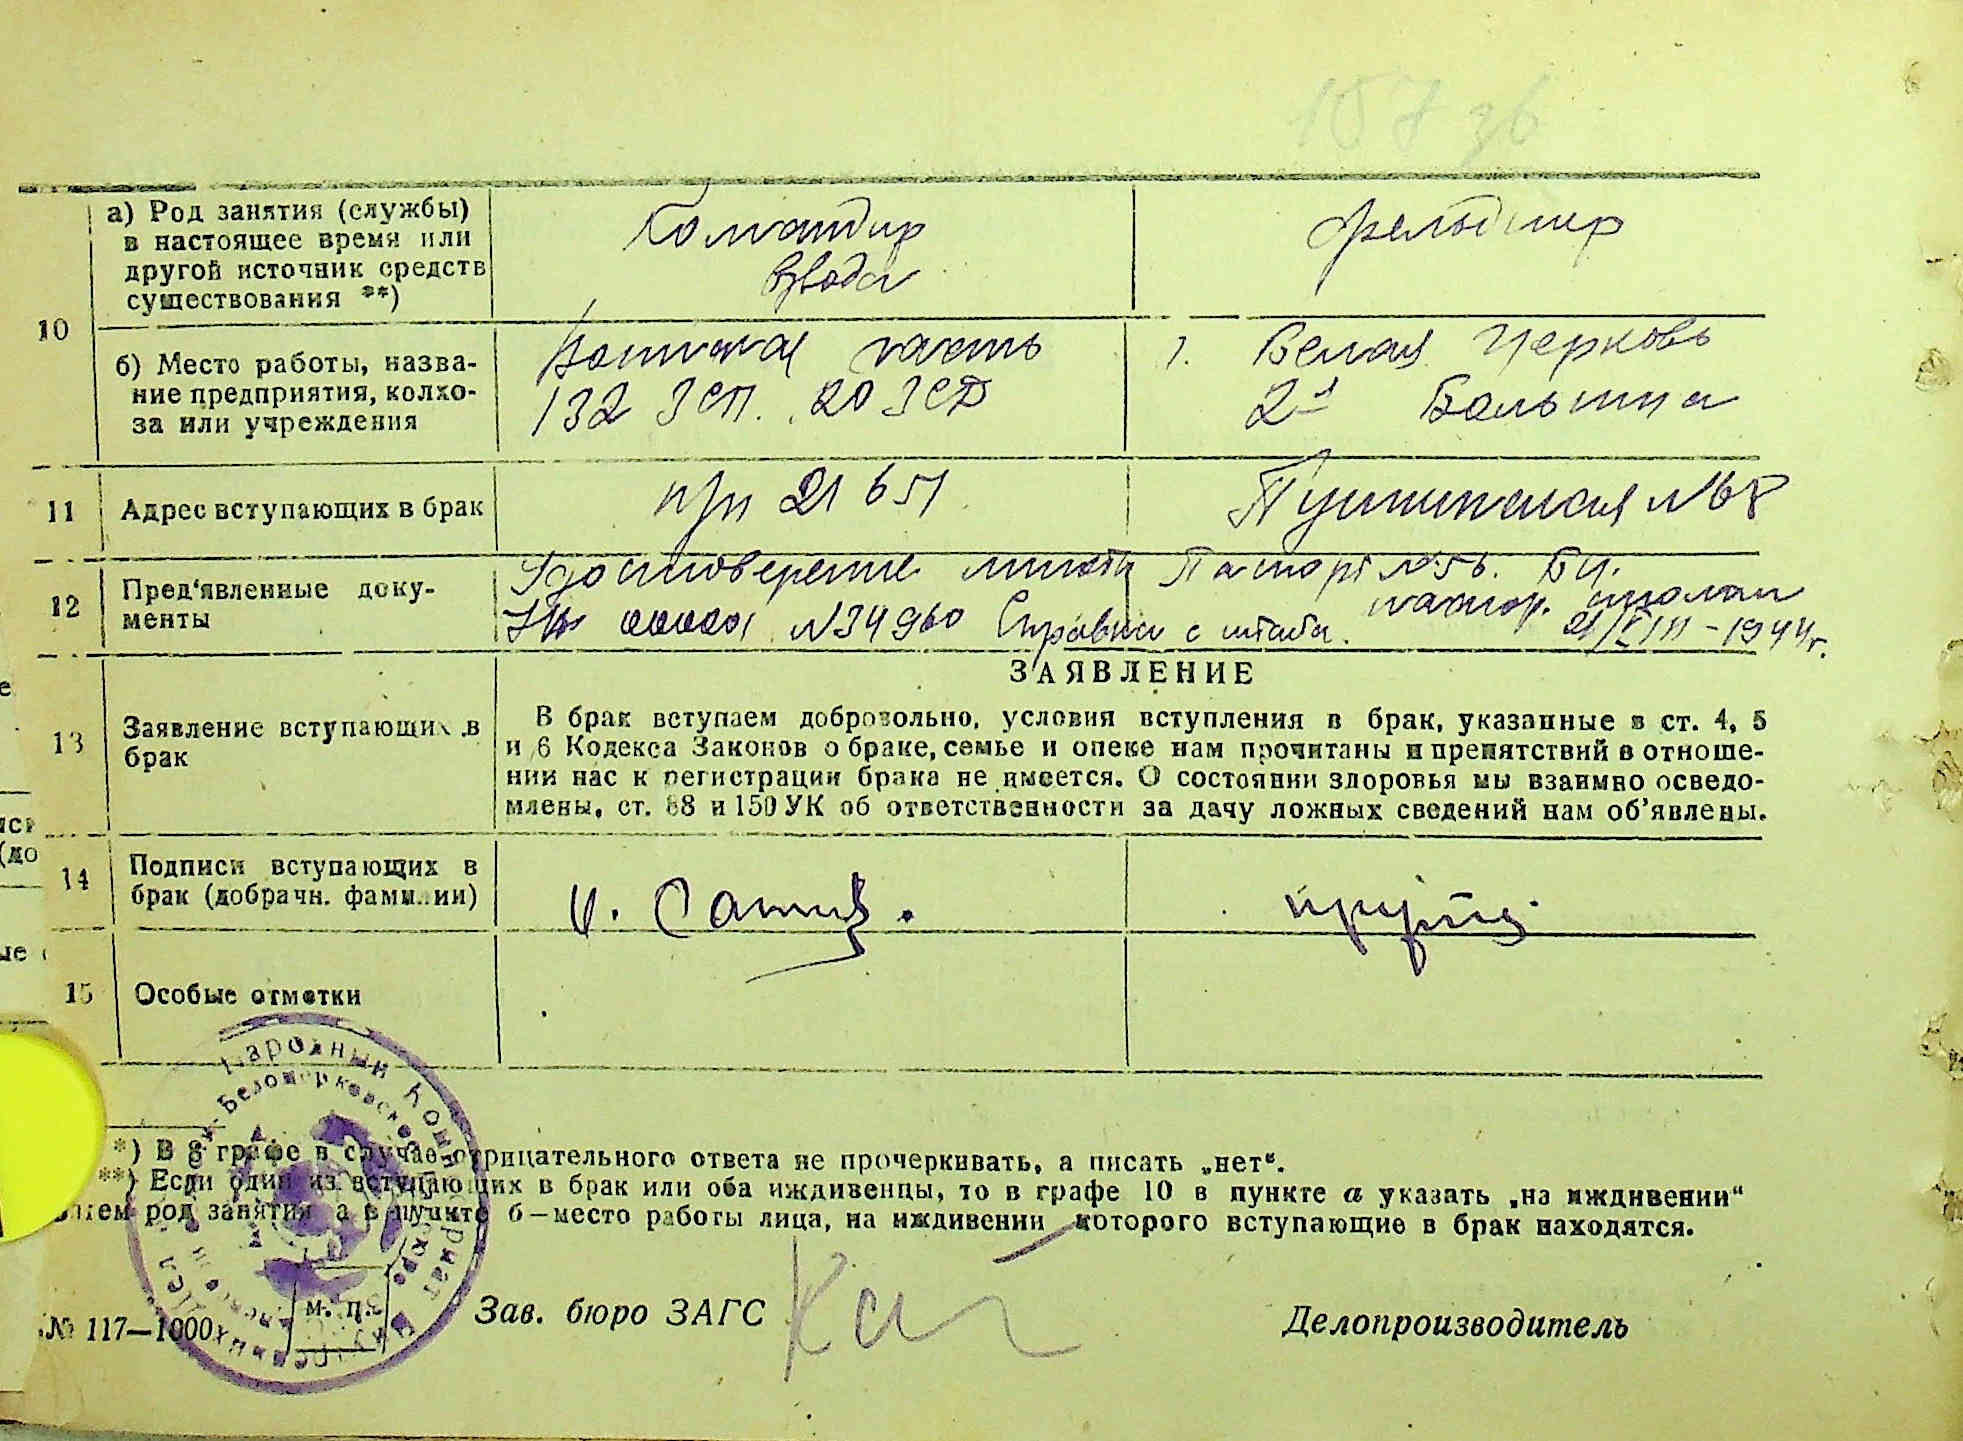 10
а) Род занятия (службы)
в настоящее время или
другой источник средств
существования **)
Командир
взвода
фельдшер
б) Место работы, назва-
ние предприятия, колхо-
за или учреждения
Воинская часть
132 ЗСП. 20 ЗСД
г. Белая Церковь
2я Больница
11
Адрес вступающих в брак
п/п 21651
Пушкинская №68
12
Пред'явленные доку-
менты
Удостоверение личности
№34960 Справка с штаба.
Паспорт №56. БЦ.
паспор. столом
21/VIII-1944г.
13
Заявление вступающих в
брак
ЗАЯВЛЕНИЕ
В брак вступаем добровольно, условия вступления в брак, указанные в ст. 4, 5
и 6 Кодекса Законов о браке, семье и опеке нам прочитаны и препятствий в отноше-
нии нас к регистрации брака не имеется. О состоянии здоровья мы взаимно осведо-
млены, ст. 88 и 150 УК об ответственности за дачу ложных сведений нам об'явлены.
14
Подписи вступающих в
брак (добрачн. фамилии)
15
Особые отметки
*) В 8 графе в случае отрицательного ответа не прочеркивать, а писать „нет“.
**) Если один из вступающих в брак или оба иждивенцы, то в графе 10 в пункте а указать „на иждивении“
затем род занятия, а в пункте б—место работы лица, на иждивении которого вступающие в брак находятся.
№ 117—1000
м. п.
Зав. бюро ЗАГС
Делопроизводитель
Народный Комиссариат Внутренних
Белоцерковское